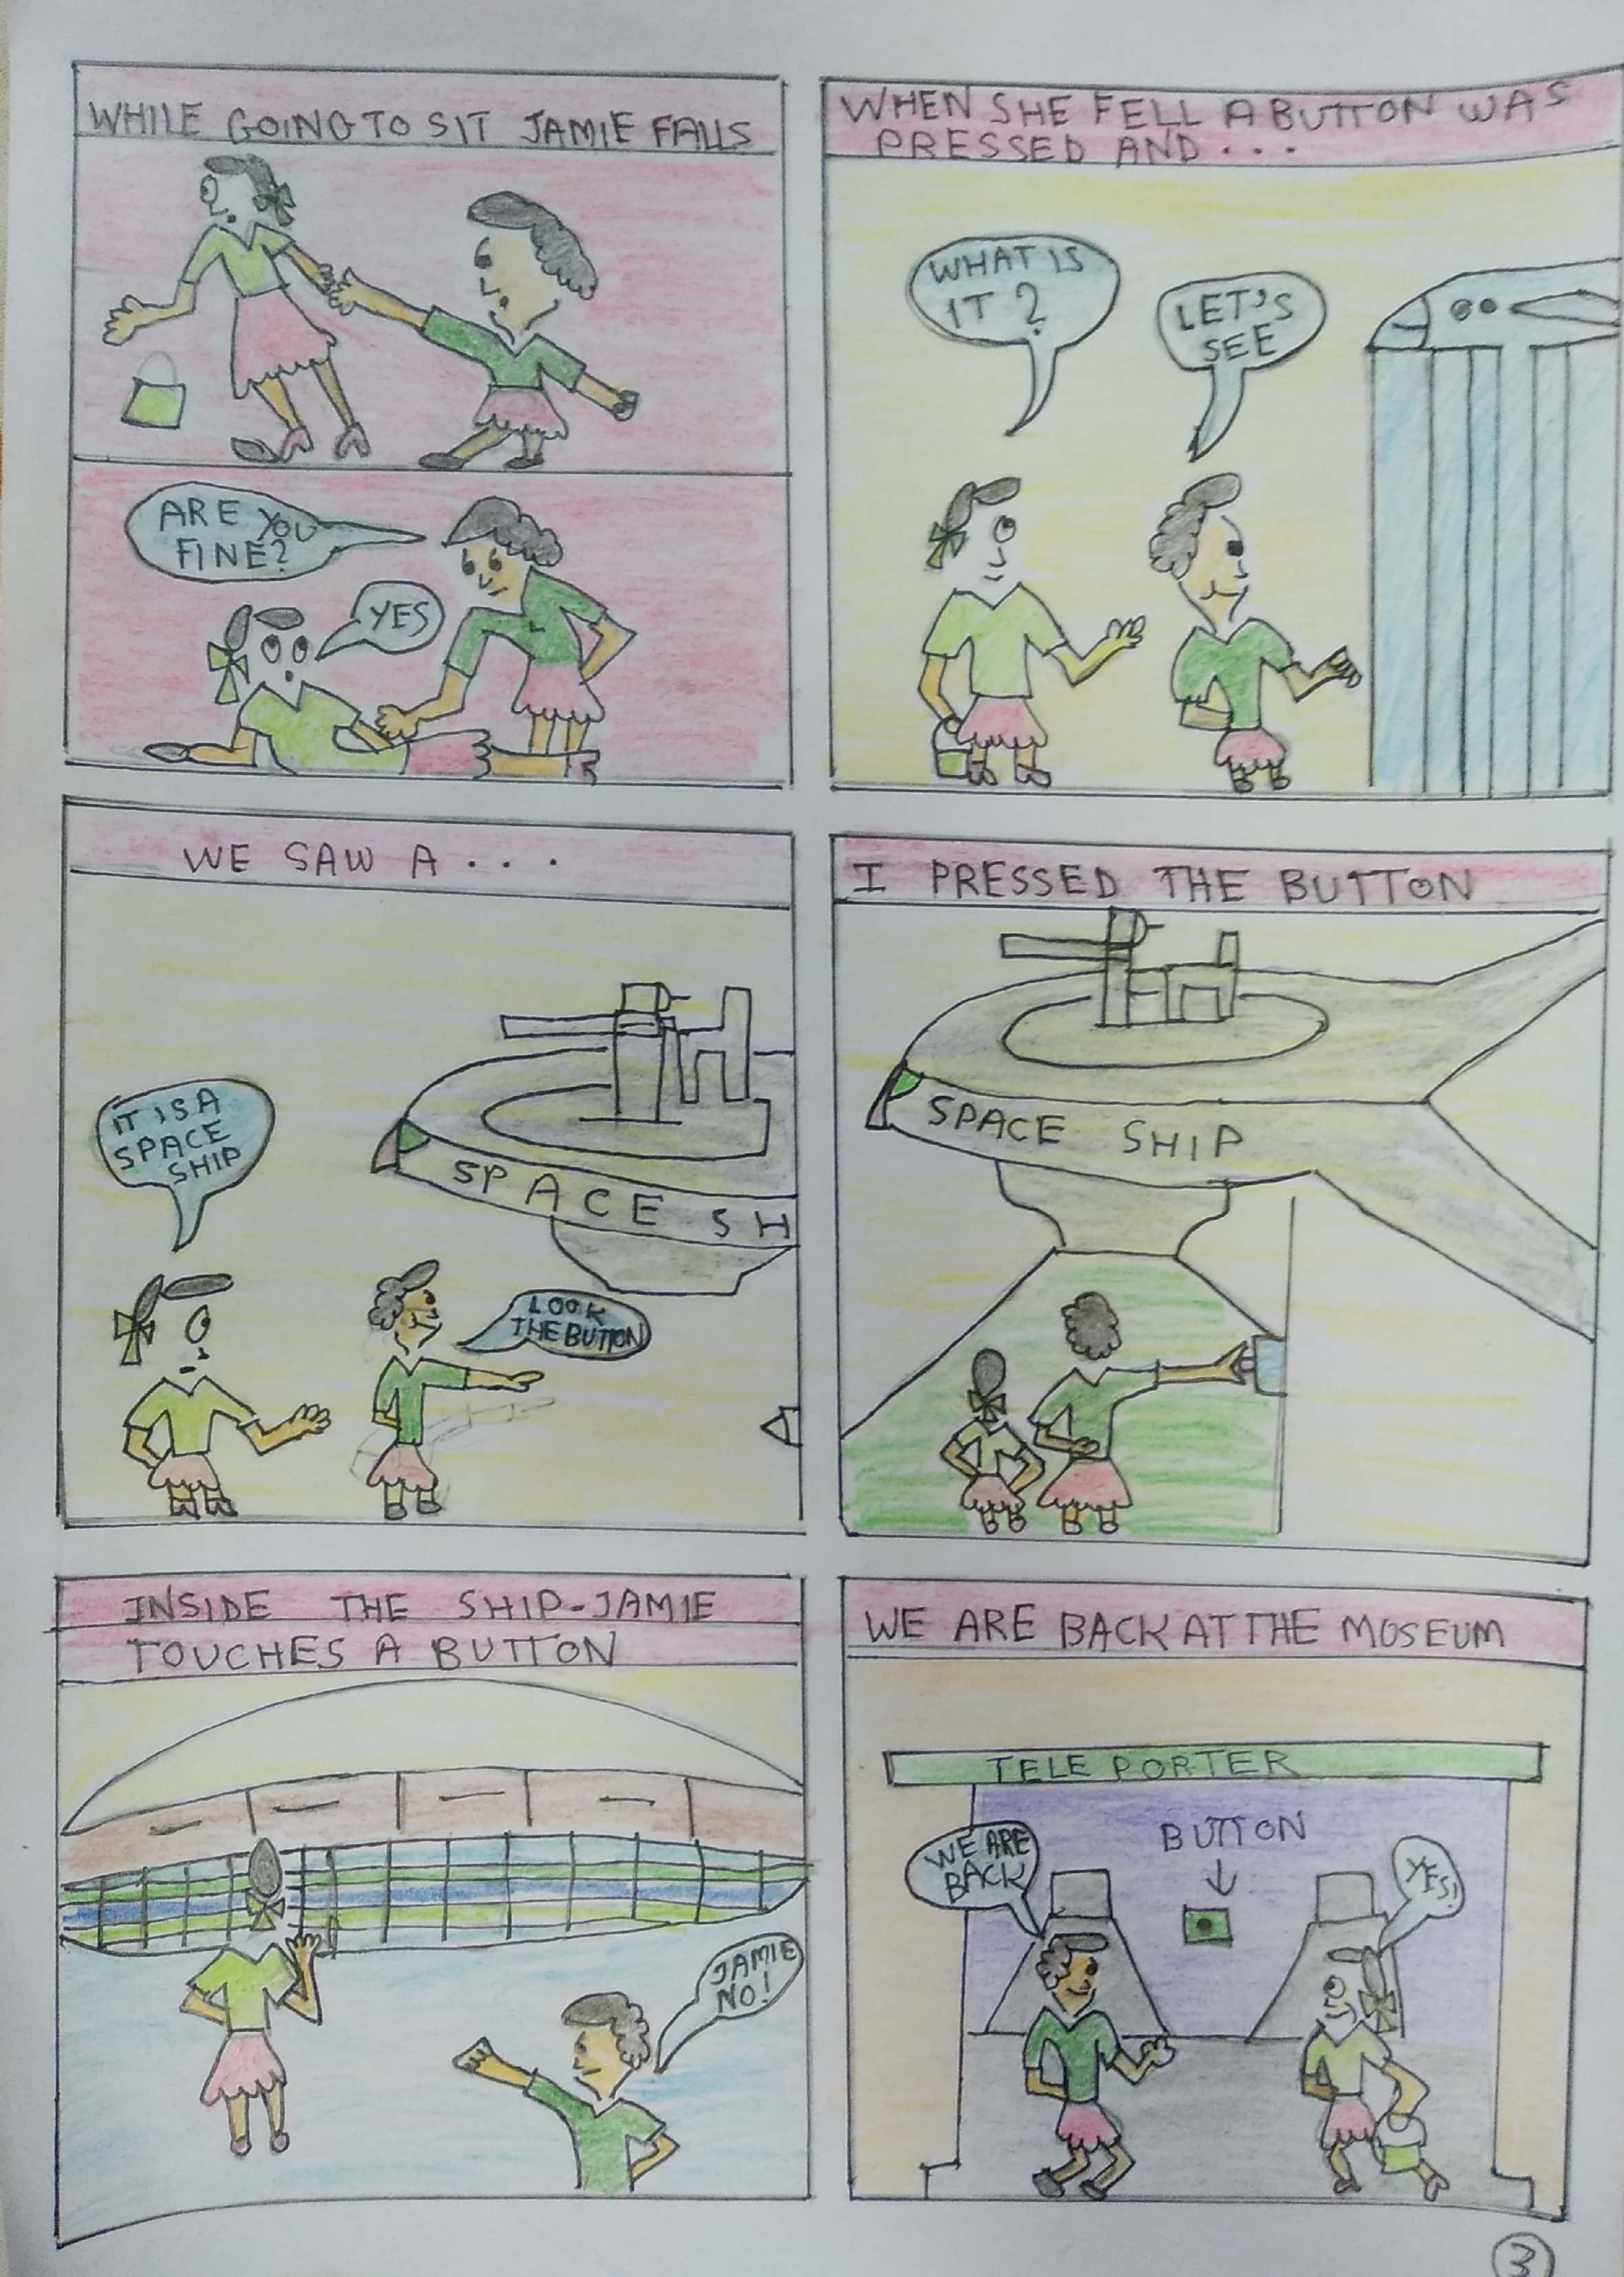 WHILE GOING TO SIT JAMIE FALLS
ARE YOU
FINE?
YES
WHEN SHE FELL A BUTTON WAS
PRESSED AND...
WHAT IS
IT?
LET'S
SEE
WE SAW A...
IT IS A
SPACE
SHIP
SPACE SH
LOOK
THE BUTTON
I PRESSED THE BUTTON
SPACE SHIP
INSIDE THE SHIP-JAMIE
TOUCHES A BUTTON
JAMIE
NO!
WE ARE BACK AT THE MUSEUM
TELE PORTER
BUTTON
WE ARE
BACK
YES!
3